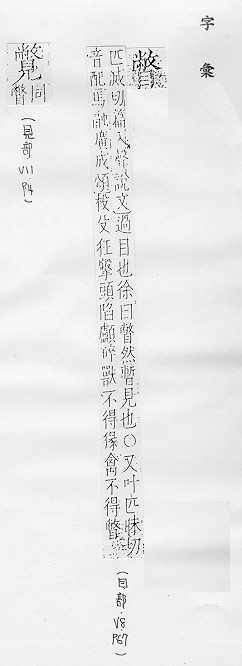 字彙
瞥
匹滅切篇入聲說文過目也徐曰瞥然暫見也○又叶匹昧切
音配馬融廣成頌祋殳狂擊頭陷顱碎獸不得猭禽不得瞥
(目部 V8 P67)
同
瞥
(見部 V11 P4)